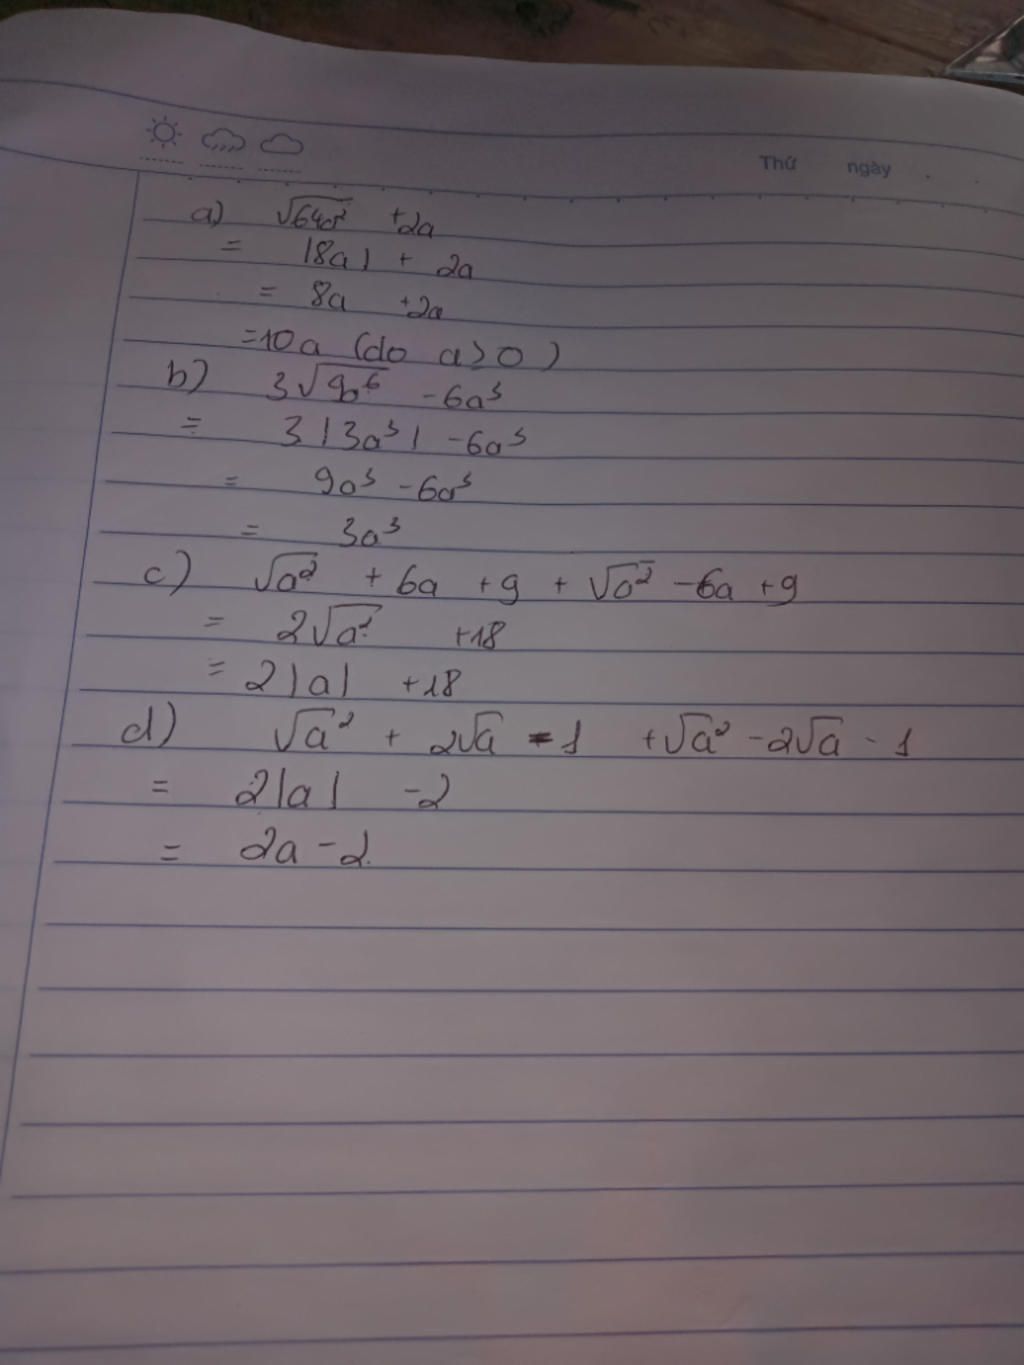 Thứ ngày
a) √64a² +2a
= |8a| + 2a
= 8a +2a
=10a (do a≥0)
b) 3√9a⁶ -6a³
= 3|3a³| -6a³
= 9a³ -6a³
= 3a³
c) √a² + 6a +9 + √a² -6a +9
= 2√a² +18
= 2|a| +18
d) √a² + 2√a -1 +√a² -2√a - 1
= 2|a| -2
= 2a -2.